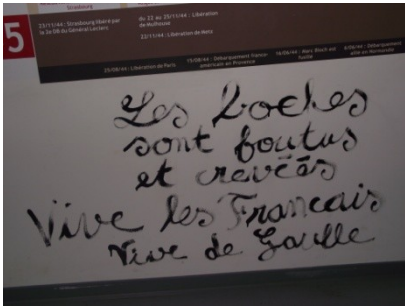 Strasbourg
23/11/44 : Strasbourg libéré par
la 2e DB du Général Leclerc
du 22 au 25/11/44 : Libération
de Mulhouse
22/11/44 : Libération de Metz
5
25/08/44 : Libération de Paris
15/08/44 : Débarquement franco-
américain en Provence
16/06/44 : Marc Bloch est
fusillé
6/06/44 : Débarquement
allié en Normandie
Les boches
sont foutus
et crevéés
Vive les Francais
Vive de Gaulle